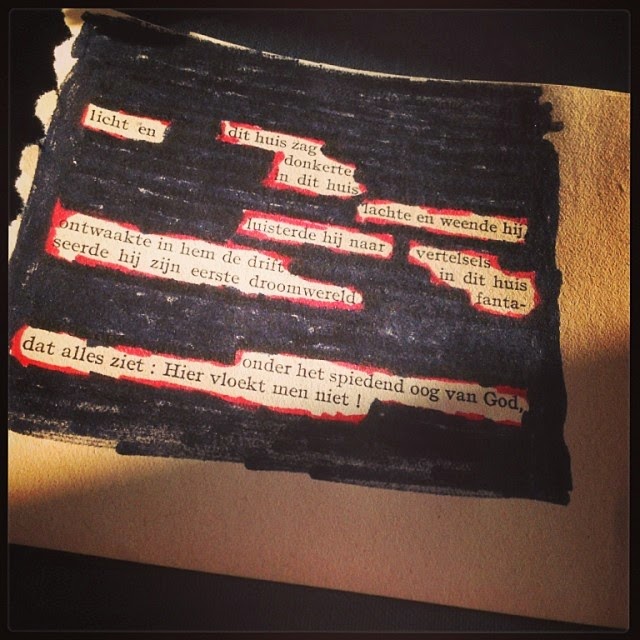 licht en dit huis zag
donkerte
in dit huis
lachte en weende hij
luisterde hij naar vertelsels
in dit huis
ontwaakte in hem de drift fanta-
seerde hij zijn eerste droomwereld
onder het spiedend oog van God,
dat alles ziet : Hier vloekt men niet !